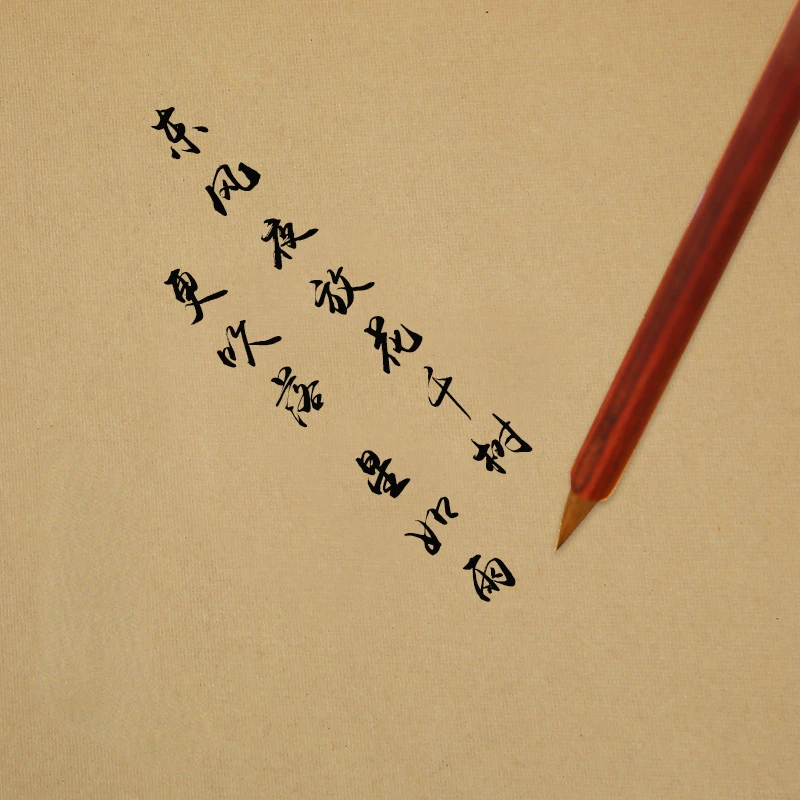 东风夜放花千树
更吹落 星如雨